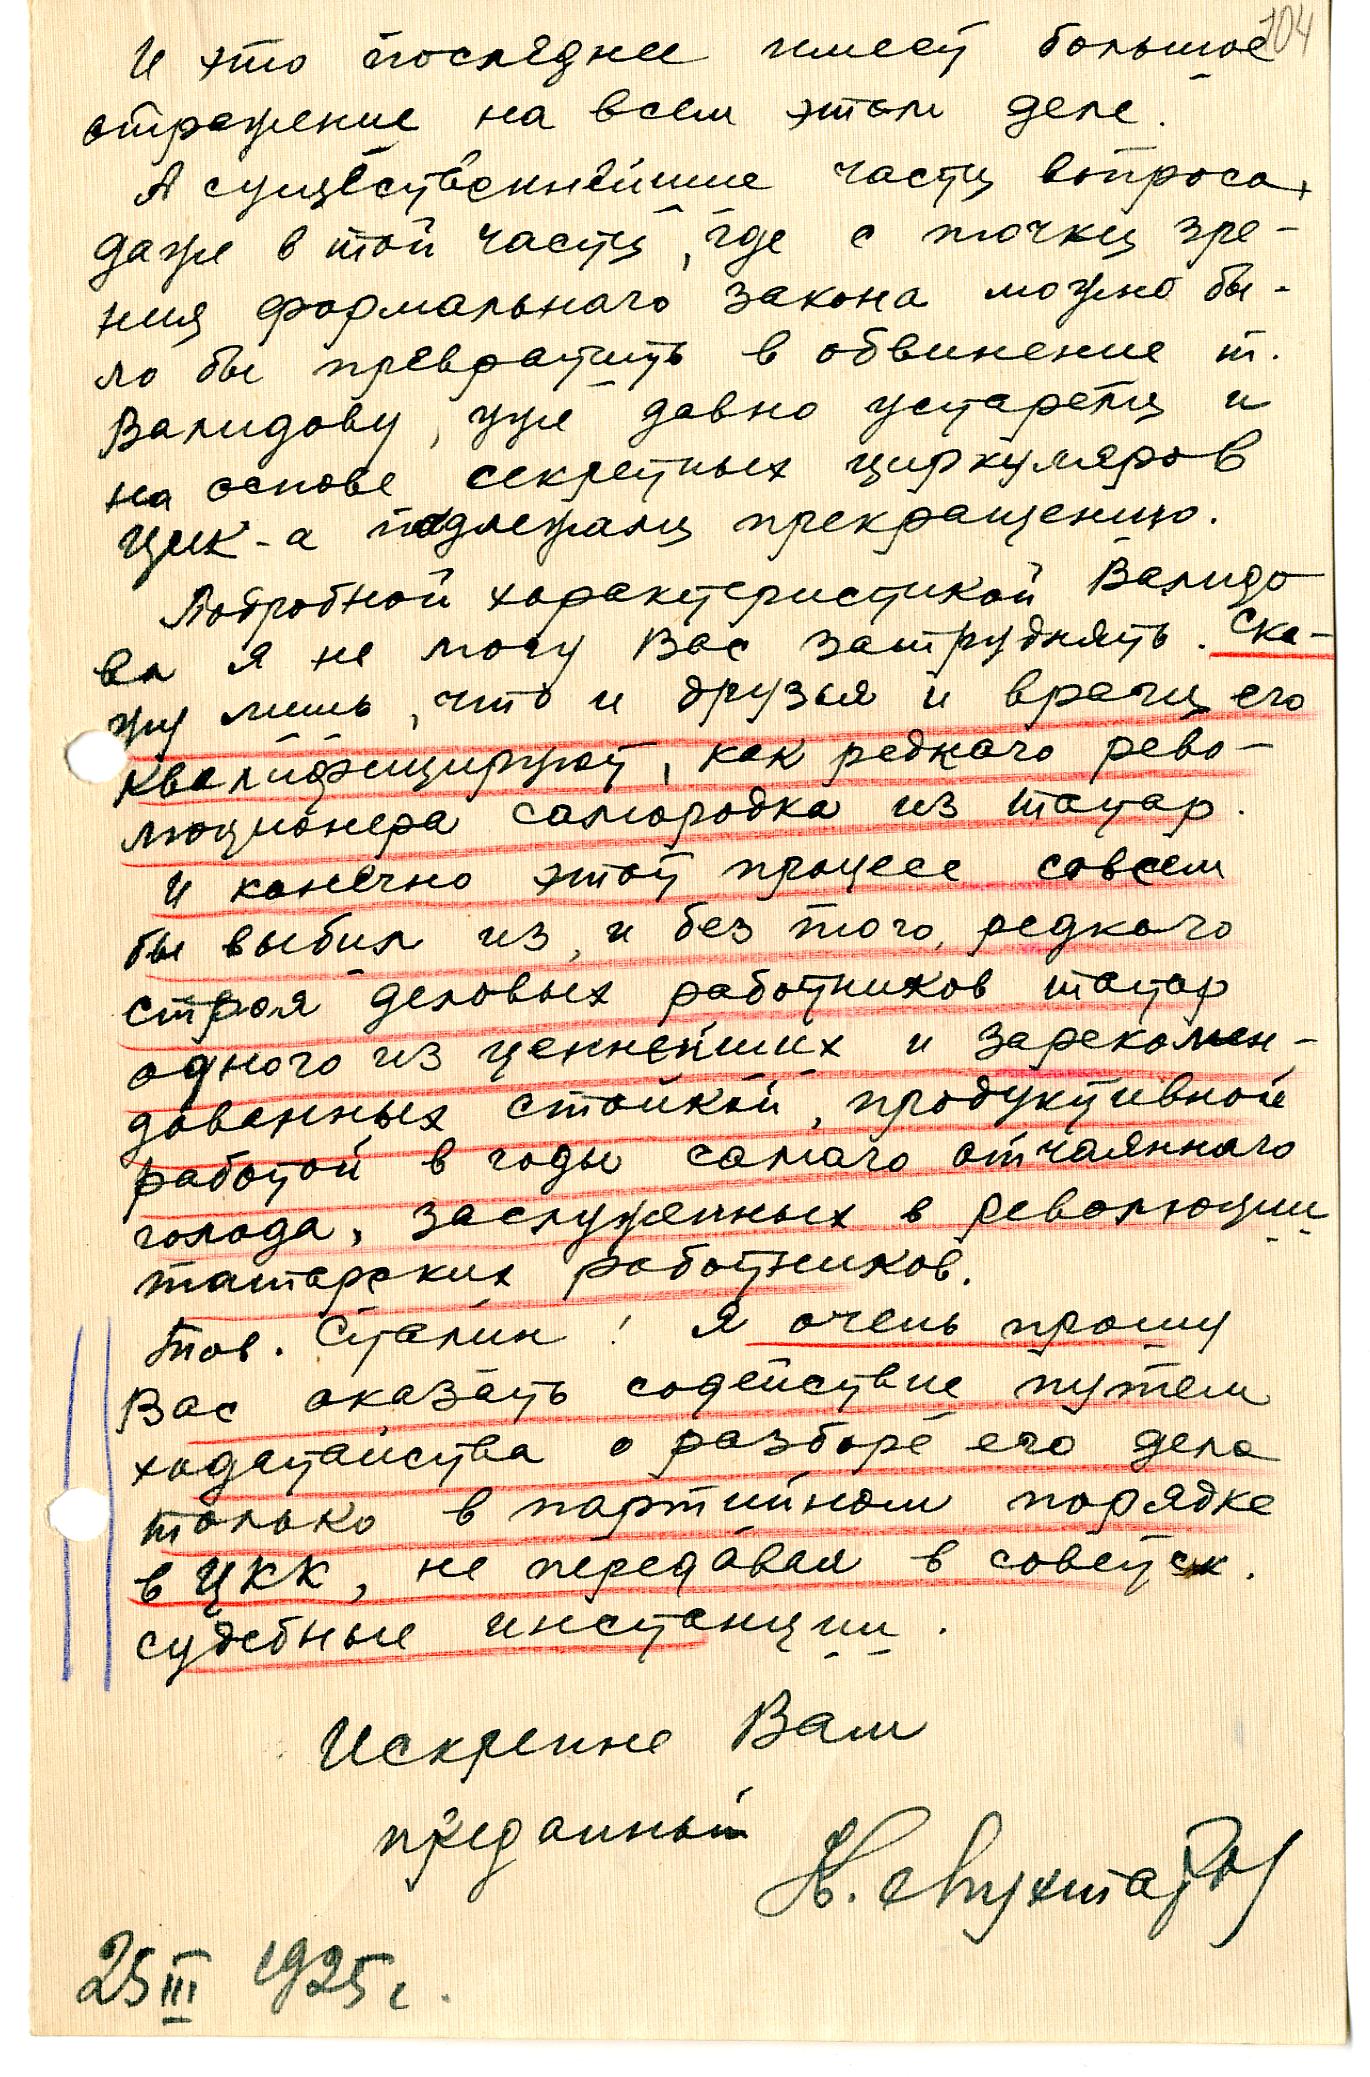 104
И это последнее имеет большое
отражение на всем этом деле.
А существеннейшие части вопроса,
даже в той части, где с точки зре-
ния формальнаго закона можно бы-
ло бы превратить в обвинение т.
Валидову, уже давно устарели и
на основе секретных циркуляров
ЦИК-а подлежали прекращению.
Подробной характеристикой Валидо-
ва я не могу Вас затруднять. Ска-
жу лишь, что и друзья и враги его
квалифицируют, как редкаго рево-
люционера самородка из татар.
И конечно этот процесс совсем
бы выбил из, и без того, редкаго
строя деловых работников татар
одного из ценнейших и зарекомен-
дованных стойкой, продуктивной
работой в годы самаго отчаяннаго
голода, заслуженных в революции
татарских работников.
Тов. Сталин! Я очень прошу
Вас оказать содействие путем
ходатайства о разборе его дела
только в партийном порядке
в ЦКК, не передавая в советск.
судебные инстанции.
Искренне Вам
преданный
К. Мухтаров
25 III 1925 г.